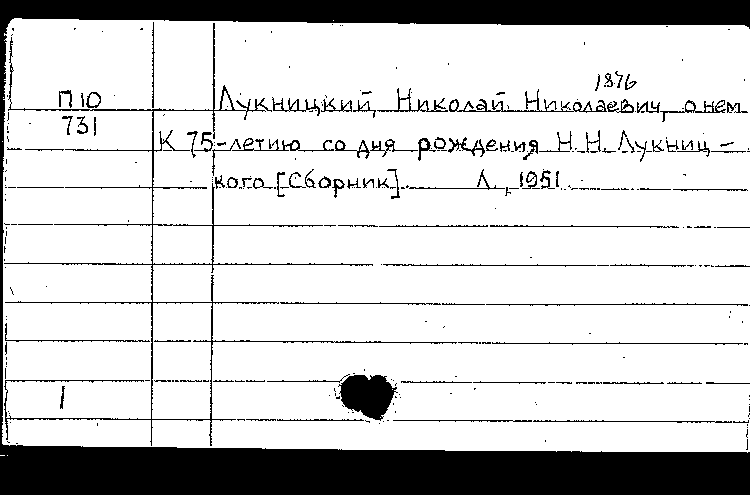 1876
П10 Лукницкий, Николай Николаевич, о нем
731
К 75-летию со дня рождения Н.Н. Лукниц-
кого [Сборник]. Л., 1951.
1